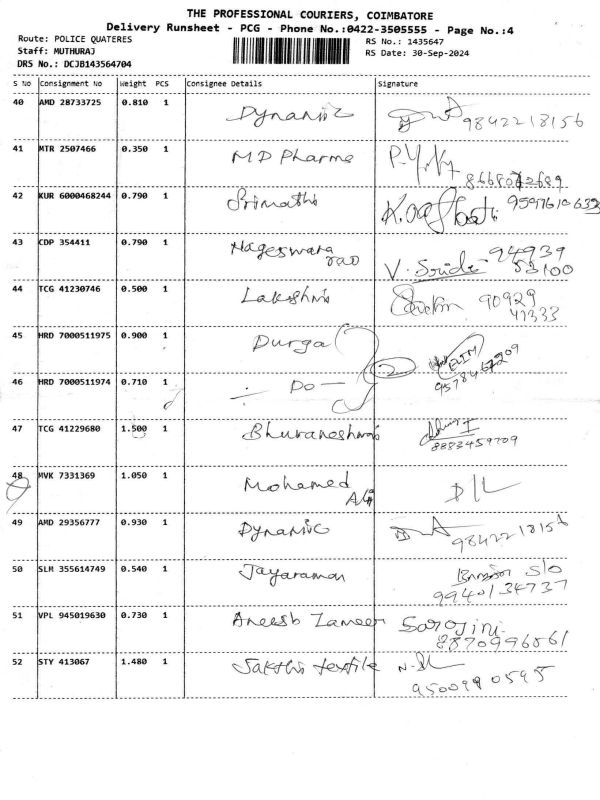 THE PROFESSIONAL COURIERS, COIMBATORE
Delivery Runsheet - PCG - Phone No.:0422-3505555 - Page No.:4
Route: POLICE QUATERES
RS No.: 1435647
Staff: MUTHURAJ
RS Date: 30-Sep-2024
DRS No.: DCJB143564704
S No Consignment No Weight PCS Consignee Details Signature
40 AMD 28733725 0.810 1 Dynamic 9842218156
41 MTR 2507466 0.350 1 MD Pharma
42 KUR 6000468244 0.790 1 Srimathi
43 CDP 354411 0.790 1 Nageswara rao V. Sride 94939 53100
44 TCG 41230746 0.500 1 Lakshmi 90929 41333
45 HRD 7000511975 0.900 1 Durga 2 ELIM
46 HRD 7000511974 0.710 1 Do
47 TCG 41229680 1.500 1 8883459709
48 MVK 7331369 1.050 1 Mohamed D/L
49 AMD 29356777 0.930 1 Dynamic
50 SLM 355614749 0.540 1 Jayaraman S/o 9940134737
51 VPL 945019630 0.730 1 Aneesh Zameer Sarojini 8870996861
52 STY 413067 1.480 1 Sakthi textile 9500990595